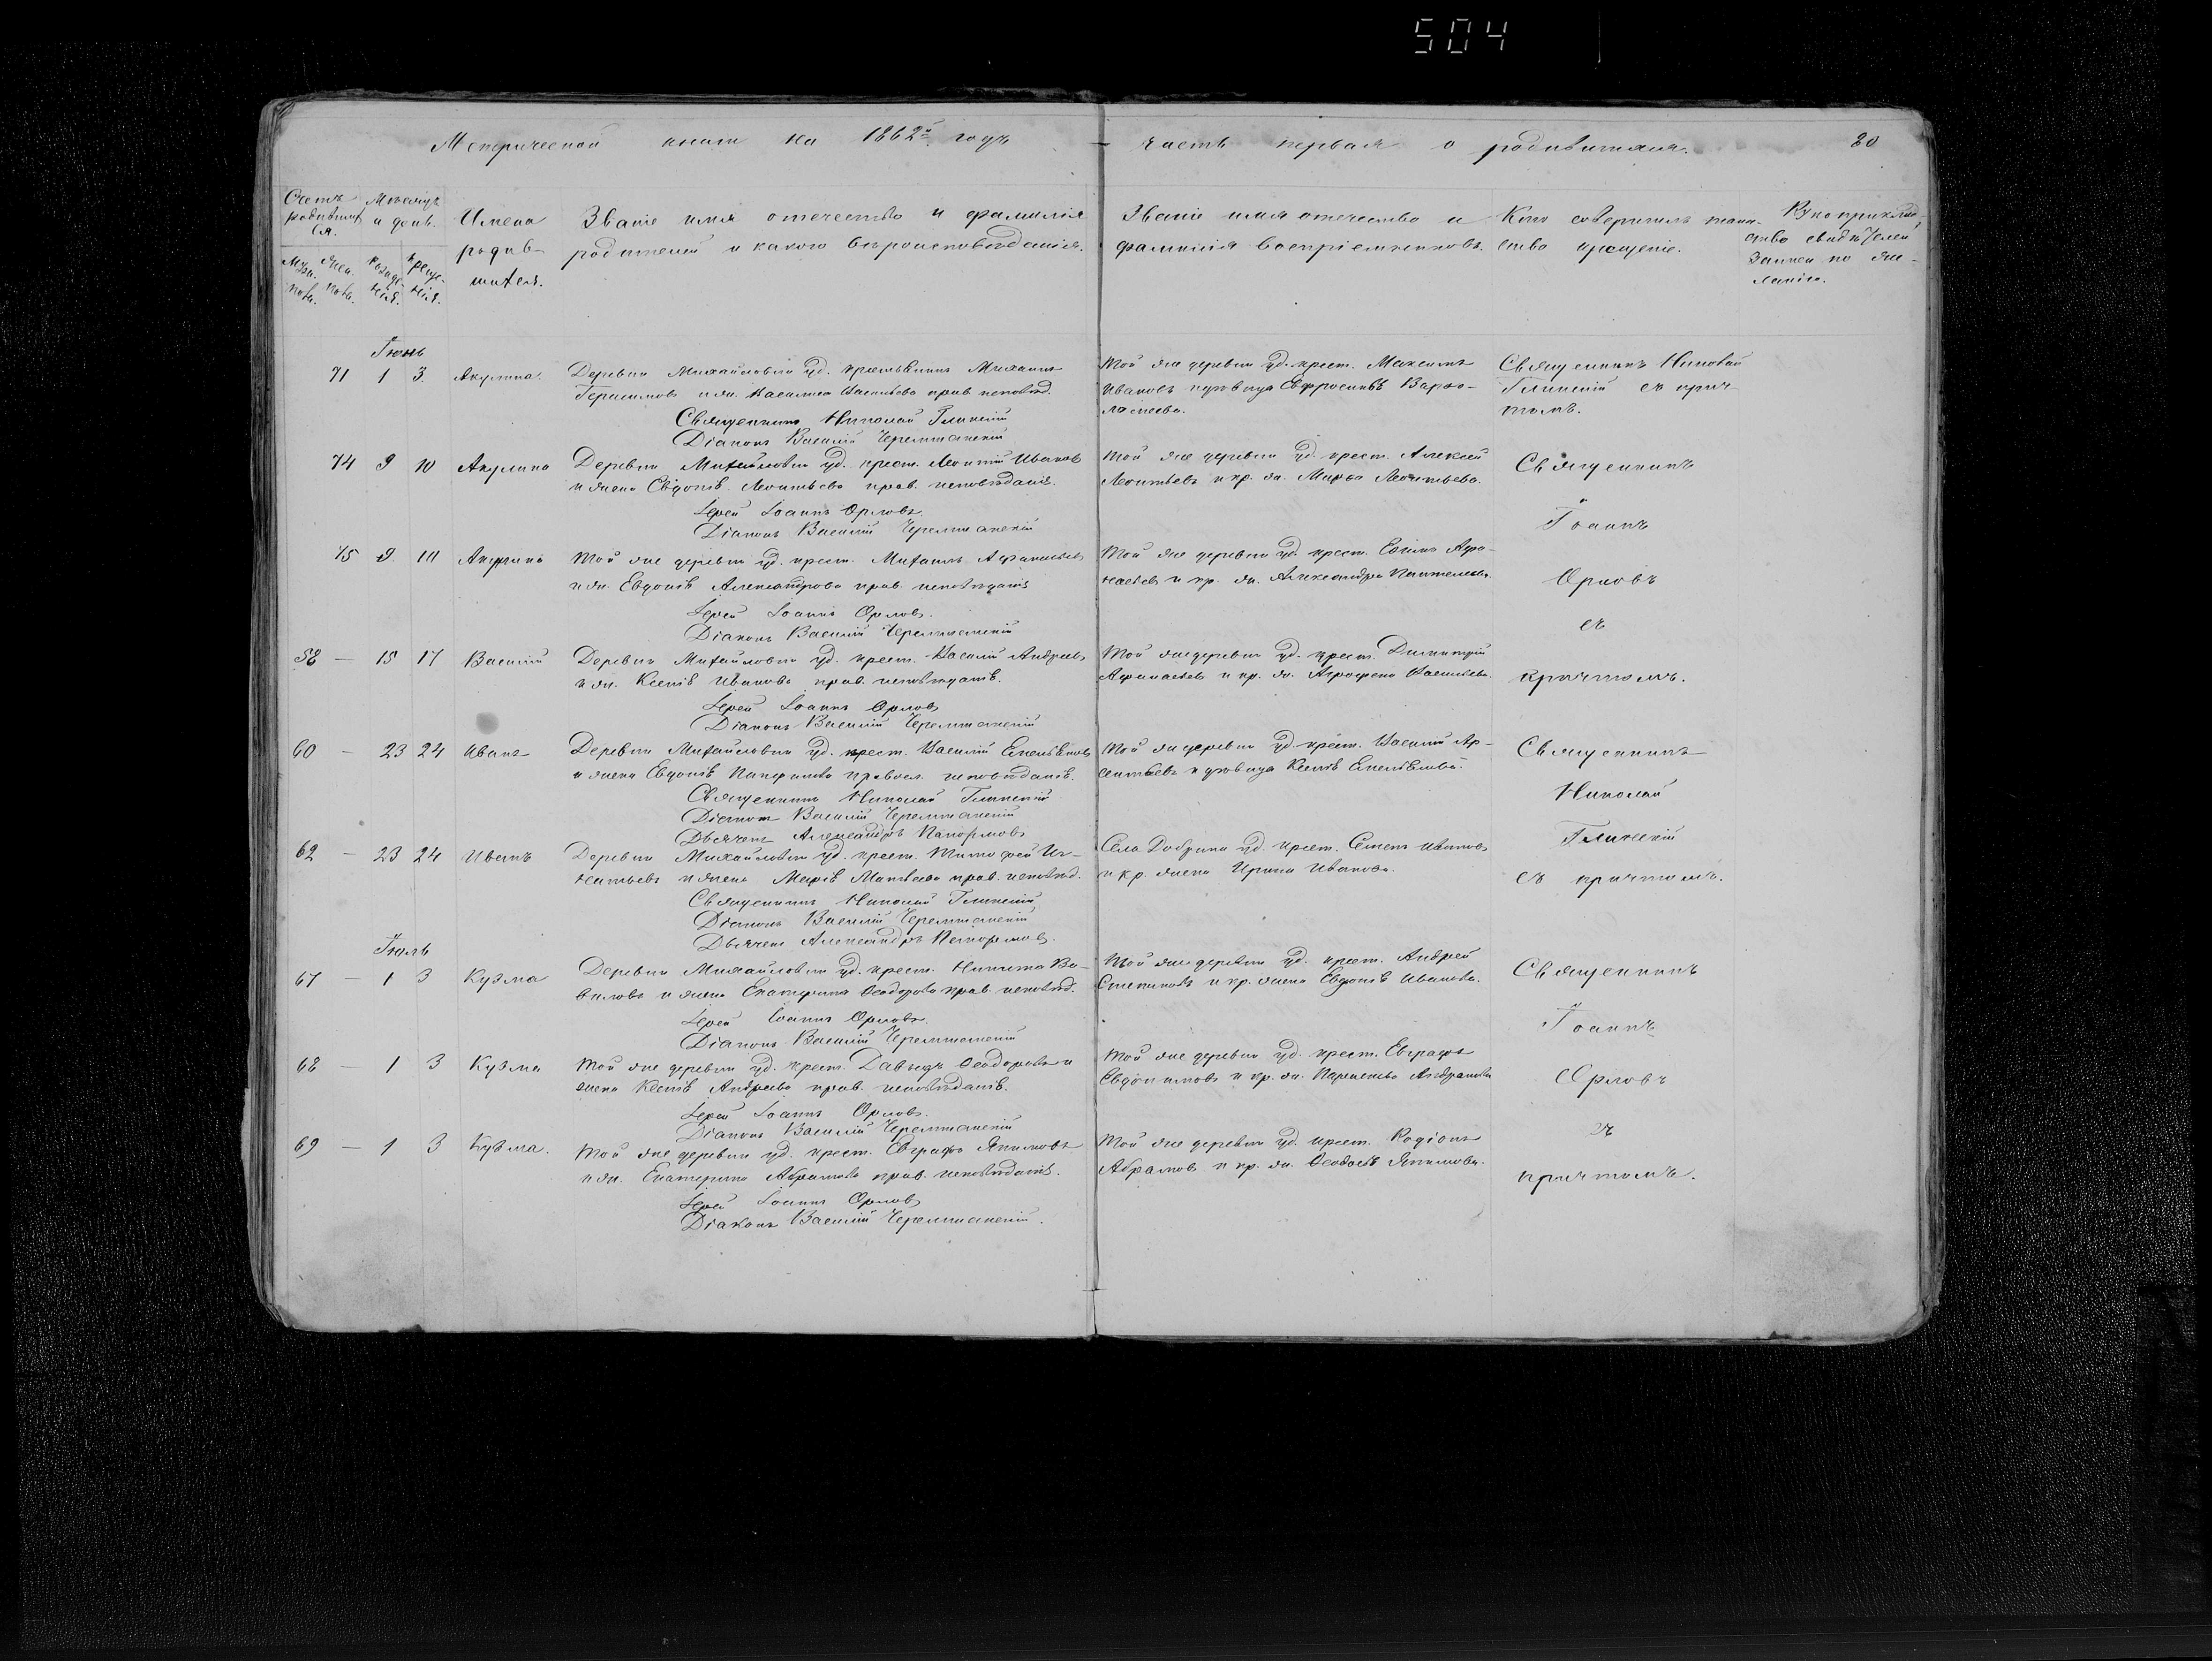 504
Метрической книги на 1862й годъ
часть первая о родившихся.
30
Счетъ родившихся.
Мѣсяцъ и день.
Имена родившихся.
Званіе имя отечество и фамилія
родителей и какого вѣроисповѣданія.
Званіе имя отечество и
фамилія воспріемниковъ.
Кто совершилъ таин-
ство крещенія.
Рукоприклад-
ство свидѣтелей
записи по же-
ланію.
Муж. пола. Жен. пола. Рожде-нія. Креще-нія.
Іюнь
71 1 3. Акулина.
Деревни Михайловки уд. крестьянинъ Михаилъ
Герасимовъ и ж. Василиса Васильева прав. исповѣд.
Священникъ Николай Глинскій
Діаконъ Василій Черемшанскій
Той же деревни уд. крест. Максимъ
Ивановъ и вдовица Евфросинія Варѳо-
ломеева.
Священникъ Николай
Глинскій съ прич-
томъ.
74 9 10 Акулина
Деревни Михайловки уд. крест. Леонтій Ивановъ
и жена Евдокія Леонтьева прав. исповѣданія.
Іерей Іоаннъ Орловъ.
Діаконъ Василій Черемшанскій
Той же деревни уд. крест. Алексей
Леонтьевъ и кр. ж. Марѳа Леонтьева.
Священникъ
Іоаннъ
Орловъ
съ
причтомъ.
75 9. 10 Акулина
Той же деревни уд. крест. Михаилъ Афанасьевъ
и ж. Евдокія Александрова прав. исповѣданія
Іерей Іоаннъ Орловъ.
Діаконъ Василій Черемшанскій
Той же деревни уд. крест. Евѳимъ Афа-
насьевъ и кр. ж. Александра Пантелеева.
58 — 15 17 Василій
Деревни Михайловки уд. крест. Василій Андреевъ
и ж. Ксенія Иванова прав. исповѣданія.
Іерей Іоаннъ Орловъ
Діаконъ Василій Черемшанскій
Той же деревни уд. крест. Димитрій
Афанасьевъ и кр. ж. Аграфена Васильева.
60 — 23 24 Иванъ
Деревни Михайловки уд. крест. Василій Емельяновъ
и жена Евдокія Панфилова правосл. исповѣданія.
Священникъ Николай Глинскій
Діаконъ Василій Черемшанскій
Дьячекъ Александръ Панормовъ
Той же деревни уд. крест. Василій Ар-
сентьевъ и вдовица Ксенія Емельянова.
Священникъ
Николай
Глинскій
съ причтомъ.
62 — 23 24 Иванъ
Деревни Михайловки уд. крест. Тимофей Иг-
натьевъ и жена Марія Матвеева прав. исповѣд.
Священникъ Николай Глинскій
Діаконъ Василій Черемшанскій
Дьячекъ Александръ Панормовъ.
Села Добрина уд. крест. Семенъ Ивановъ
и кр. жена Ирина Иванова.
Іюль
67 — 1 3 Кузма
Деревни Михайловки уд. крест. Никита Ва-
виловъ и жена Екатерина Ѳеодорова прав. исповѣд.
Іерей Іоаннъ Орловъ.
Діаконъ Василій Черемшанскій
Той же деревни уд. крест. Андрей
Степановъ и кр. жена Евдокія Иванова.
Священникъ
Іоаннъ
Орловъ
съ
причтомъ.
68 — 1 3 Кузма
Той же деревни уд. крест. Давыдъ Ѳеодоровъ и
жена Ксенія Андреева прав. исповѣданія.
Іерей Іоаннъ Орловъ.
Діаконъ Василій Черемшанскій
Той же деревни уд. крест. Евграфъ
Евдокимовъ и кр. ж.
69 — 1 3 Кузма.
Той же деревни уд. крест. Евграфъ Якимовъ
и ж. Екатерина Абрамова прав. исповѣданія.
Іерей Іоаннъ Орловъ
Діаконъ Василій Черемшанскій.
Той же деревни уд. крест. Родіонъ
Абрамовъ и кр. ж. Ѳеодосія Якимова.